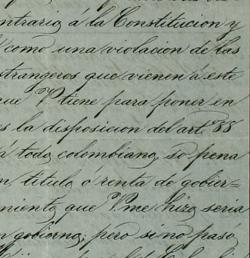 ntrario á la Constitucion y
como una violacion de las
strangeros que vienen á este
que V tiene para poner en
s la disposicion del art. 88
á todo colombiano, so pena
n, titulo ó renta de gobier-
miento que Vme hizo seria
n gobierno; pero si no paso